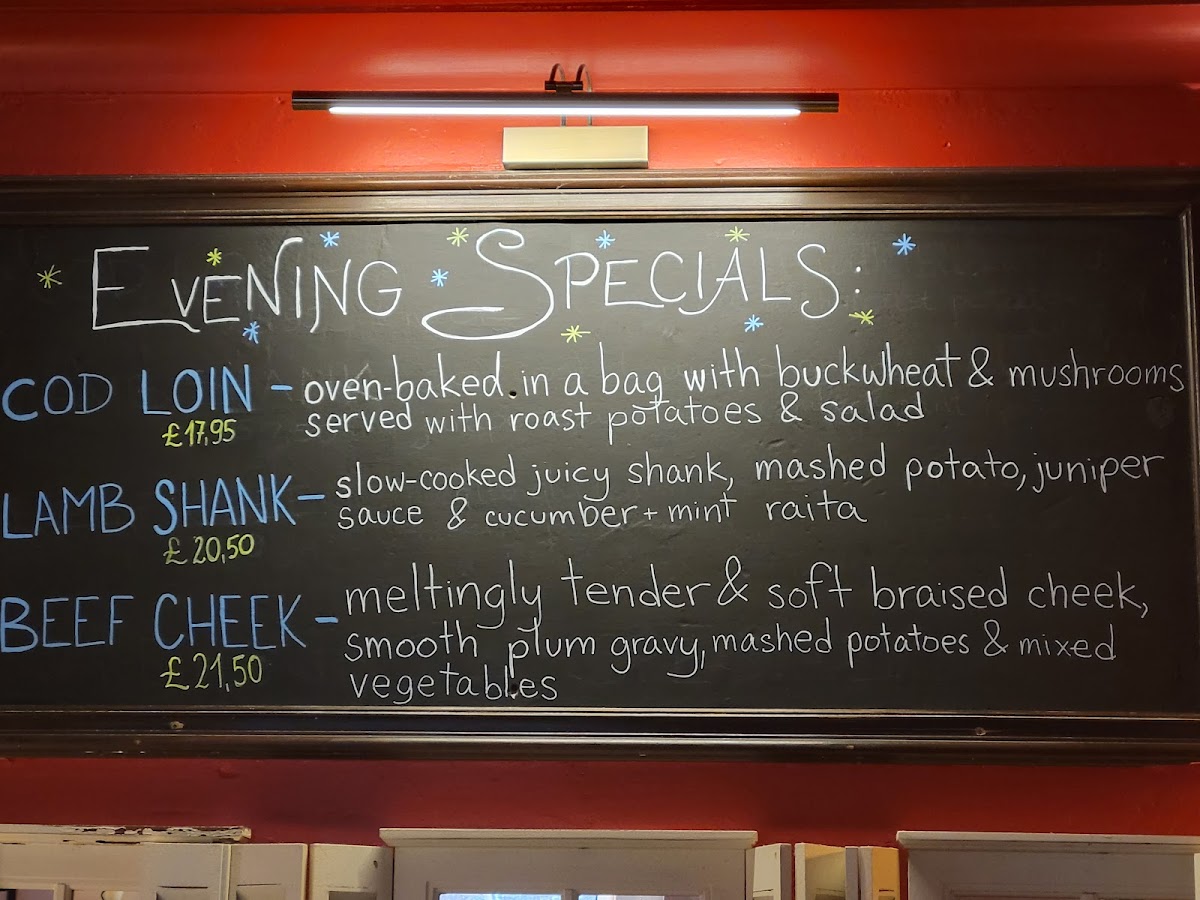 EVENING SPECIALS:
COD LOIN - oven-baked in a bag with buckwheat & mushrooms
served with roast potatoes & salad
£17,95
LAMB SHANK - slow-cooked juicy shank, mashed potato, juniper
sauce & cucumber + mint raita
£20,50
BEEF CHEEK - meltingly tender & soft braised cheek,
smooth plum gravy, mashed potatoes & mixed
£21,50
vegetables